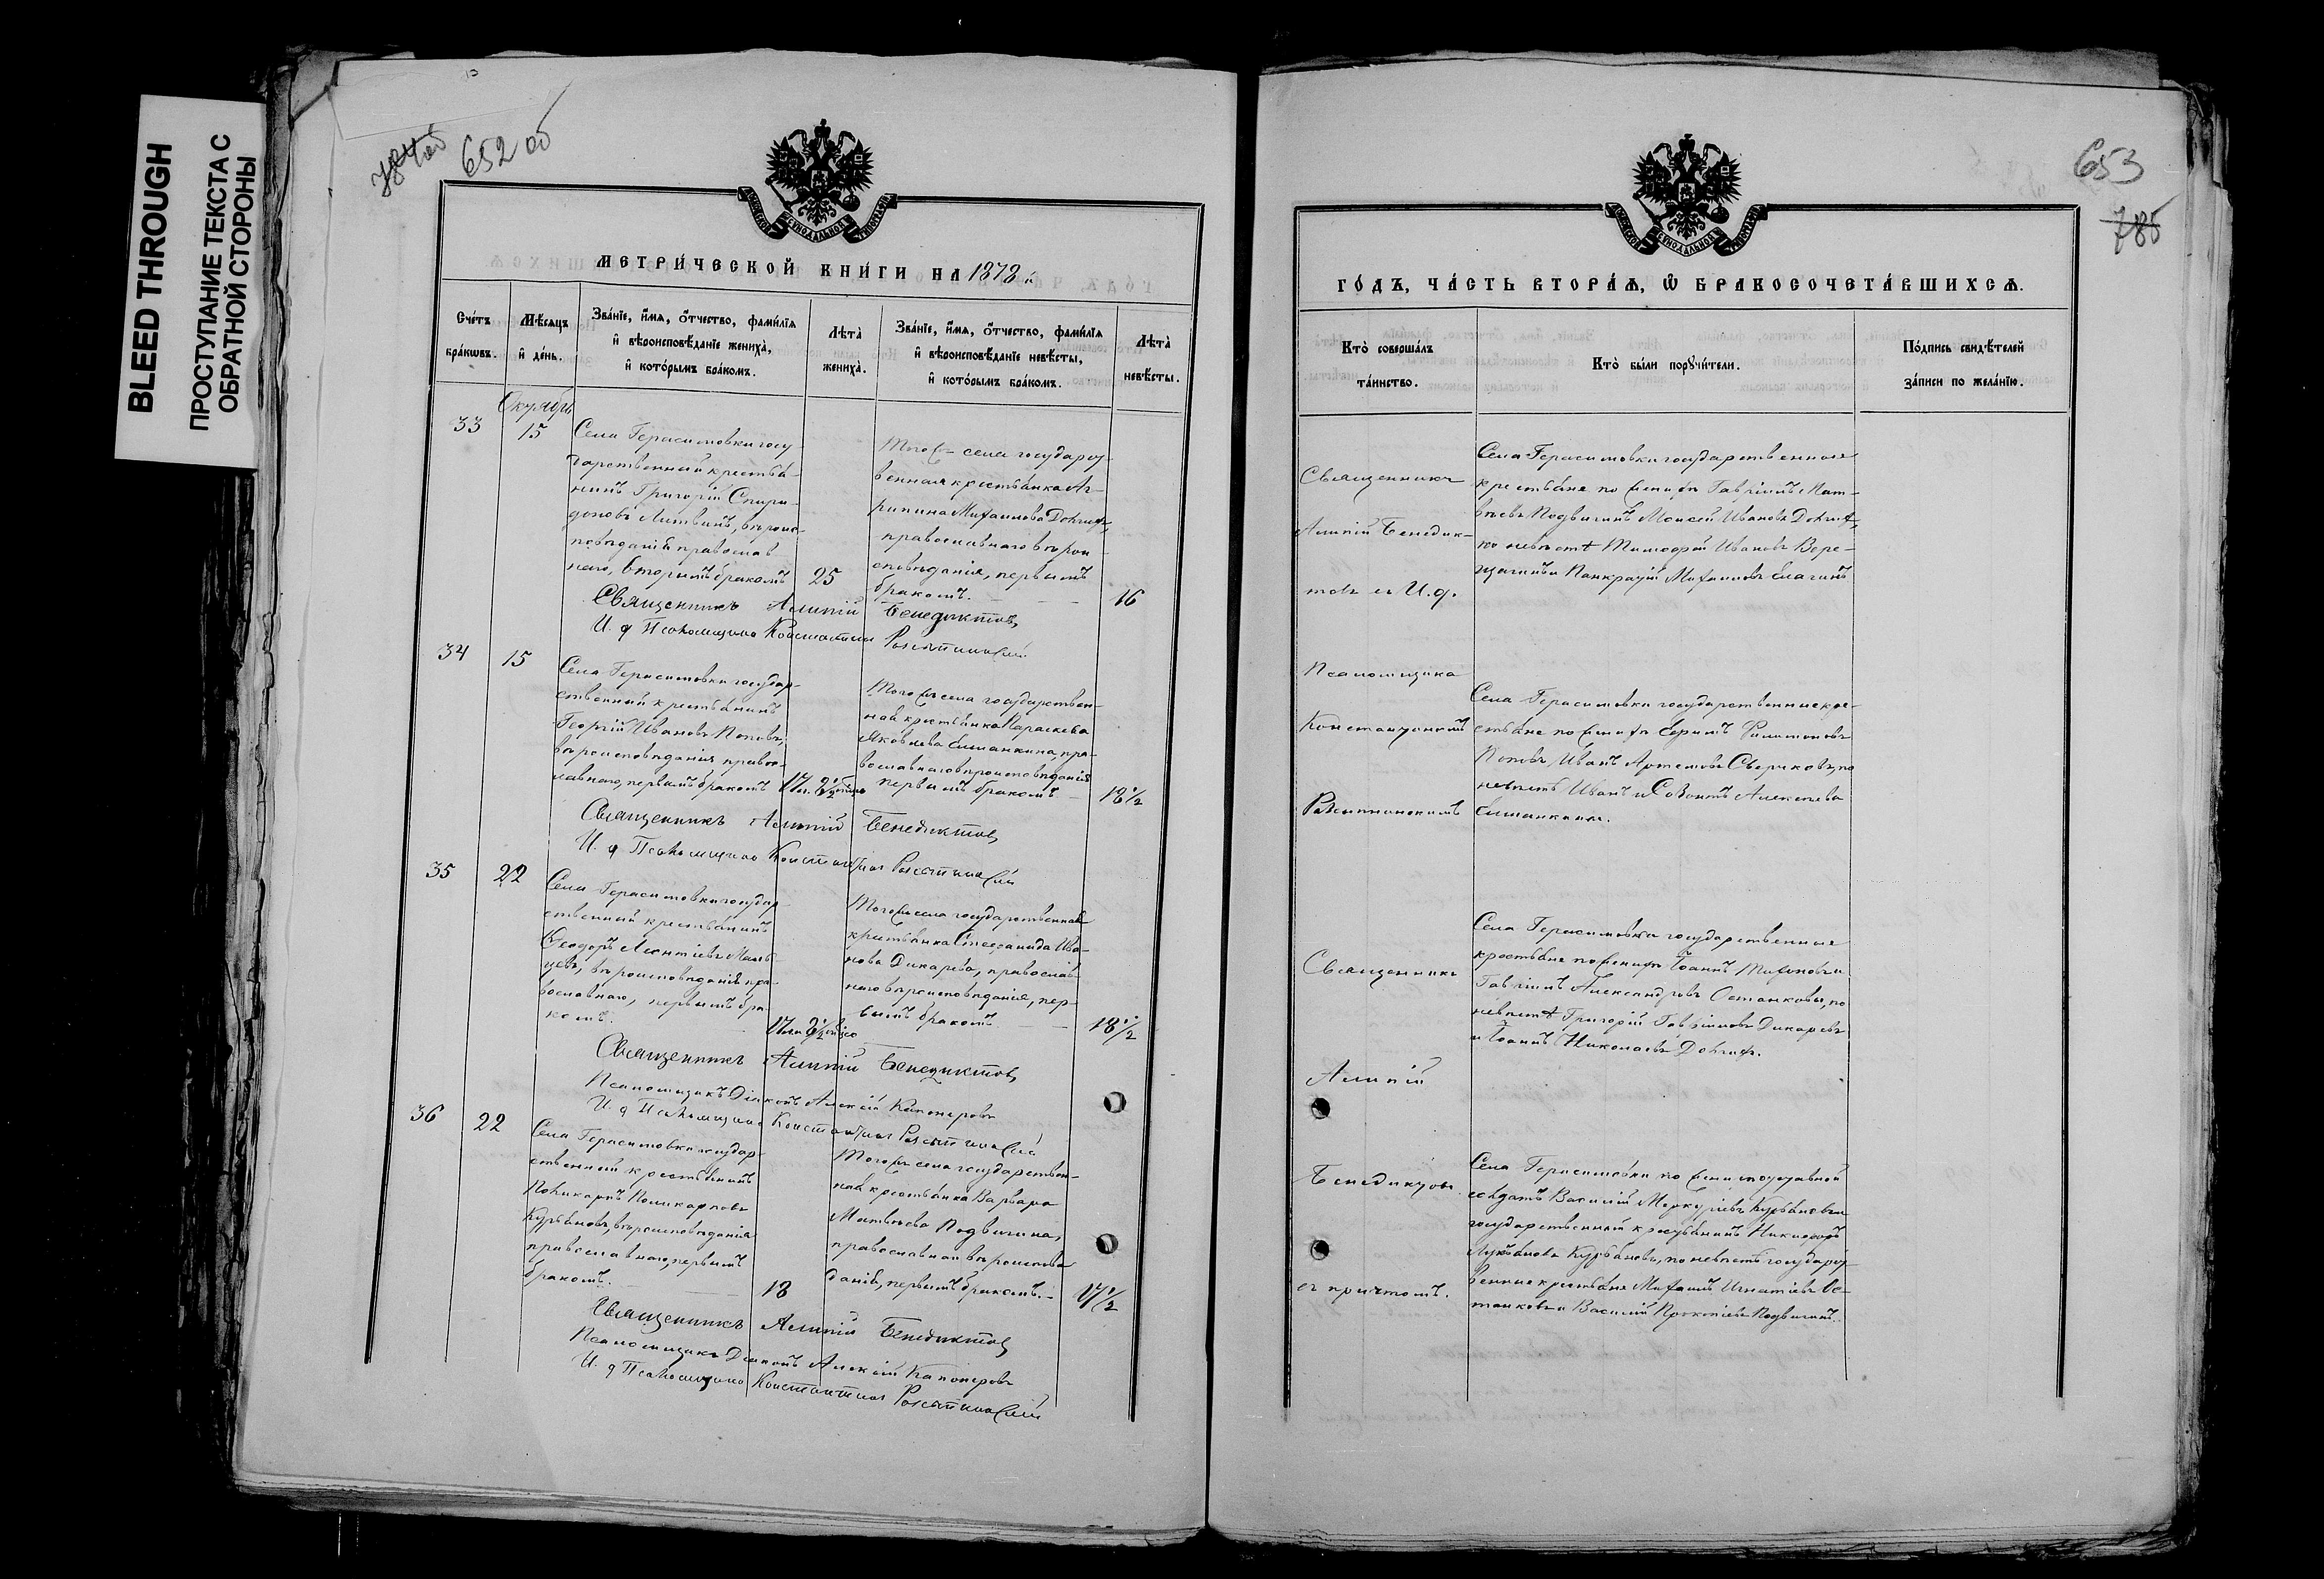 BLEED THROUGH
ПРОСТУПАНИЕ ТЕКСТА С
ОБРАТНОЙ СТОРОНЫ
784 об
652 об
МЕТРИ́ЧЕСКОЙ КНИ́ГИ НА 1878 й
Сче́тъ бра́кѡвъ.
Мѣ́сяцъ и҆ де́нь.
Зва́нїе, и҆́мѧ, ѻ҆́тчество, фами́лїѧ
и҆ вѣроисповѣ́данїе жениха̀,
и҆ кото́рымъ бра́комъ.
Лѣта̀ жениха̀.
Зва́нїе, и҆́мѧ, ѻ҆́тчество, фами́лїѧ
и҆ вѣроисповѣ́данїе невѣ́сты,
и҆ кото́рымъ бра́комъ.
Лѣта̀ невѣ́сты.
Октябрь
33
15
Села Герасимовки госу-
дарственный крестья-
нинъ Григорій Спири-
доновъ Литвинъ, вѣроис-
повѣданія православ
наго, вторымъ бракомъ
25
Тогожъ села государст
венная крестьянка Аг-
рипина Михаилова
православнаго вѣрои
сповѣданія, первымъ
бракомъ.
16
Священникъ Алипій Бенедиктовъ
И. д Псаломщика Константинъ
34
15
Села Герасимовки государ-
ственный крестьянинъ
Георгій Ивановъ Поповъ,
вѣроисповѣданія правос-
лавнаго, первымъ бракомъ
Тогожъ села государствен-
ная крестьянка Параскева
Яковлева Симанкина, пра-
вославнаго вѣроисповѣданія
первымъ бракомъ
18 1/2
Священникъ Алипій Бенедиктовъ
И. д Псаломщика Константинъ
35
22
Села Герасимовки государ-
ственный крестьянинъ
Феодоръ Леонтіевъ Маль
цевъ, вѣроисповѣданія пра-
вославнаго, первымъ бра-
комъ.
Тогожъ села государственная
крестьянка Ива-
нова Дикарева, православ
наго вѣроисповѣданія, пер-
вымъ бракомъ
18 1/2
Священникъ Алипій Бенедиктовъ
Псаломщикъ Діаконъ Алексій Капоперовъ
И. д Псаломщика Константинъ
36
22
Села Герасимовки государ-
ственный крестьянинъ
Поликарпъ Поликарповъ
Курьяновъ, вѣроисповѣданія
православнаго, первымъ
бракомъ.
18
Тогожъ села государствен-
ная крестьянка Варвара
Матвѣева Подвигина,
православнаго вѣроисповѣ
данія, первымъ бракомъ.
17 1/2
Священникъ Алипій Бенедиктовъ
Псаломщикъ Діаконъ Алексій Капоперовъ
И. д Псаломщика Константинъ
653
785
ГО́ДЪ, ЧА́СТЬ ВТОРА́Ѧ, Ѽ БРАКОСОЧЕТА́ВШИХСѦ.
Кто̀ соверша́лъ
та́инство.
Кто̀ бы́ли порꙋчи́тели.
По́дпись свидѣ́телей
за́писи по жела́нїю.
Священникъ
Алипій Бенедик-
товъ съ И. д.
Псаломщика
Константиномъ
Села Герасимовки государственные
крестьяне по женихѣ Гавріилъ Мат-
вѣевъ Подвигинъ Моисей Ивановъ
по невѣстѣ Тимофей Ивановъ Вере-
щагинъ и Панкратій Михаиловъ
Села Герасимовки государственные кре-
стьяне по женихѣ Филимоновъ
Поповъ, Иванъ Артемовъ по
невѣстѣ Иванъ и Созонтъ Алексѣевы
Симанкины.
Священникъ
Алипій
Бенедиктовъ
съ причтомъ.
Села Герасимовки государственные
крестьяне по женихѣ Іоаннъ и
Гавріилъ Александровъ Останковы, по
невѣстѣ Григорій Гавріиловъ Дикаревъ
и Іоаннъ Николаевъ
Села Герасимовки по женихѣ отставной
солдатъ Василій Меркуріевъ Курьяновъ и
государственный крестьянинъ Никифоръ
Лукьяновъ Курьяновъ, по невѣстѣ государст
венные крестьяне Михаилъ Игнатіевъ Ос-
танковъ и Василій Прокопіевъ Подвигинъ.